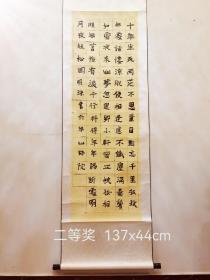 十年生死两茫不思量自難忘千里孤坟
無處話淒涼縱使相逢應不識塵滿面鬢
如霜夜來幽夢忽還鄉小軒窗正梳妝相
顧無言惟有淚千行料得年年腸斷處明
月夜短松岡
二等奖 137x44cm